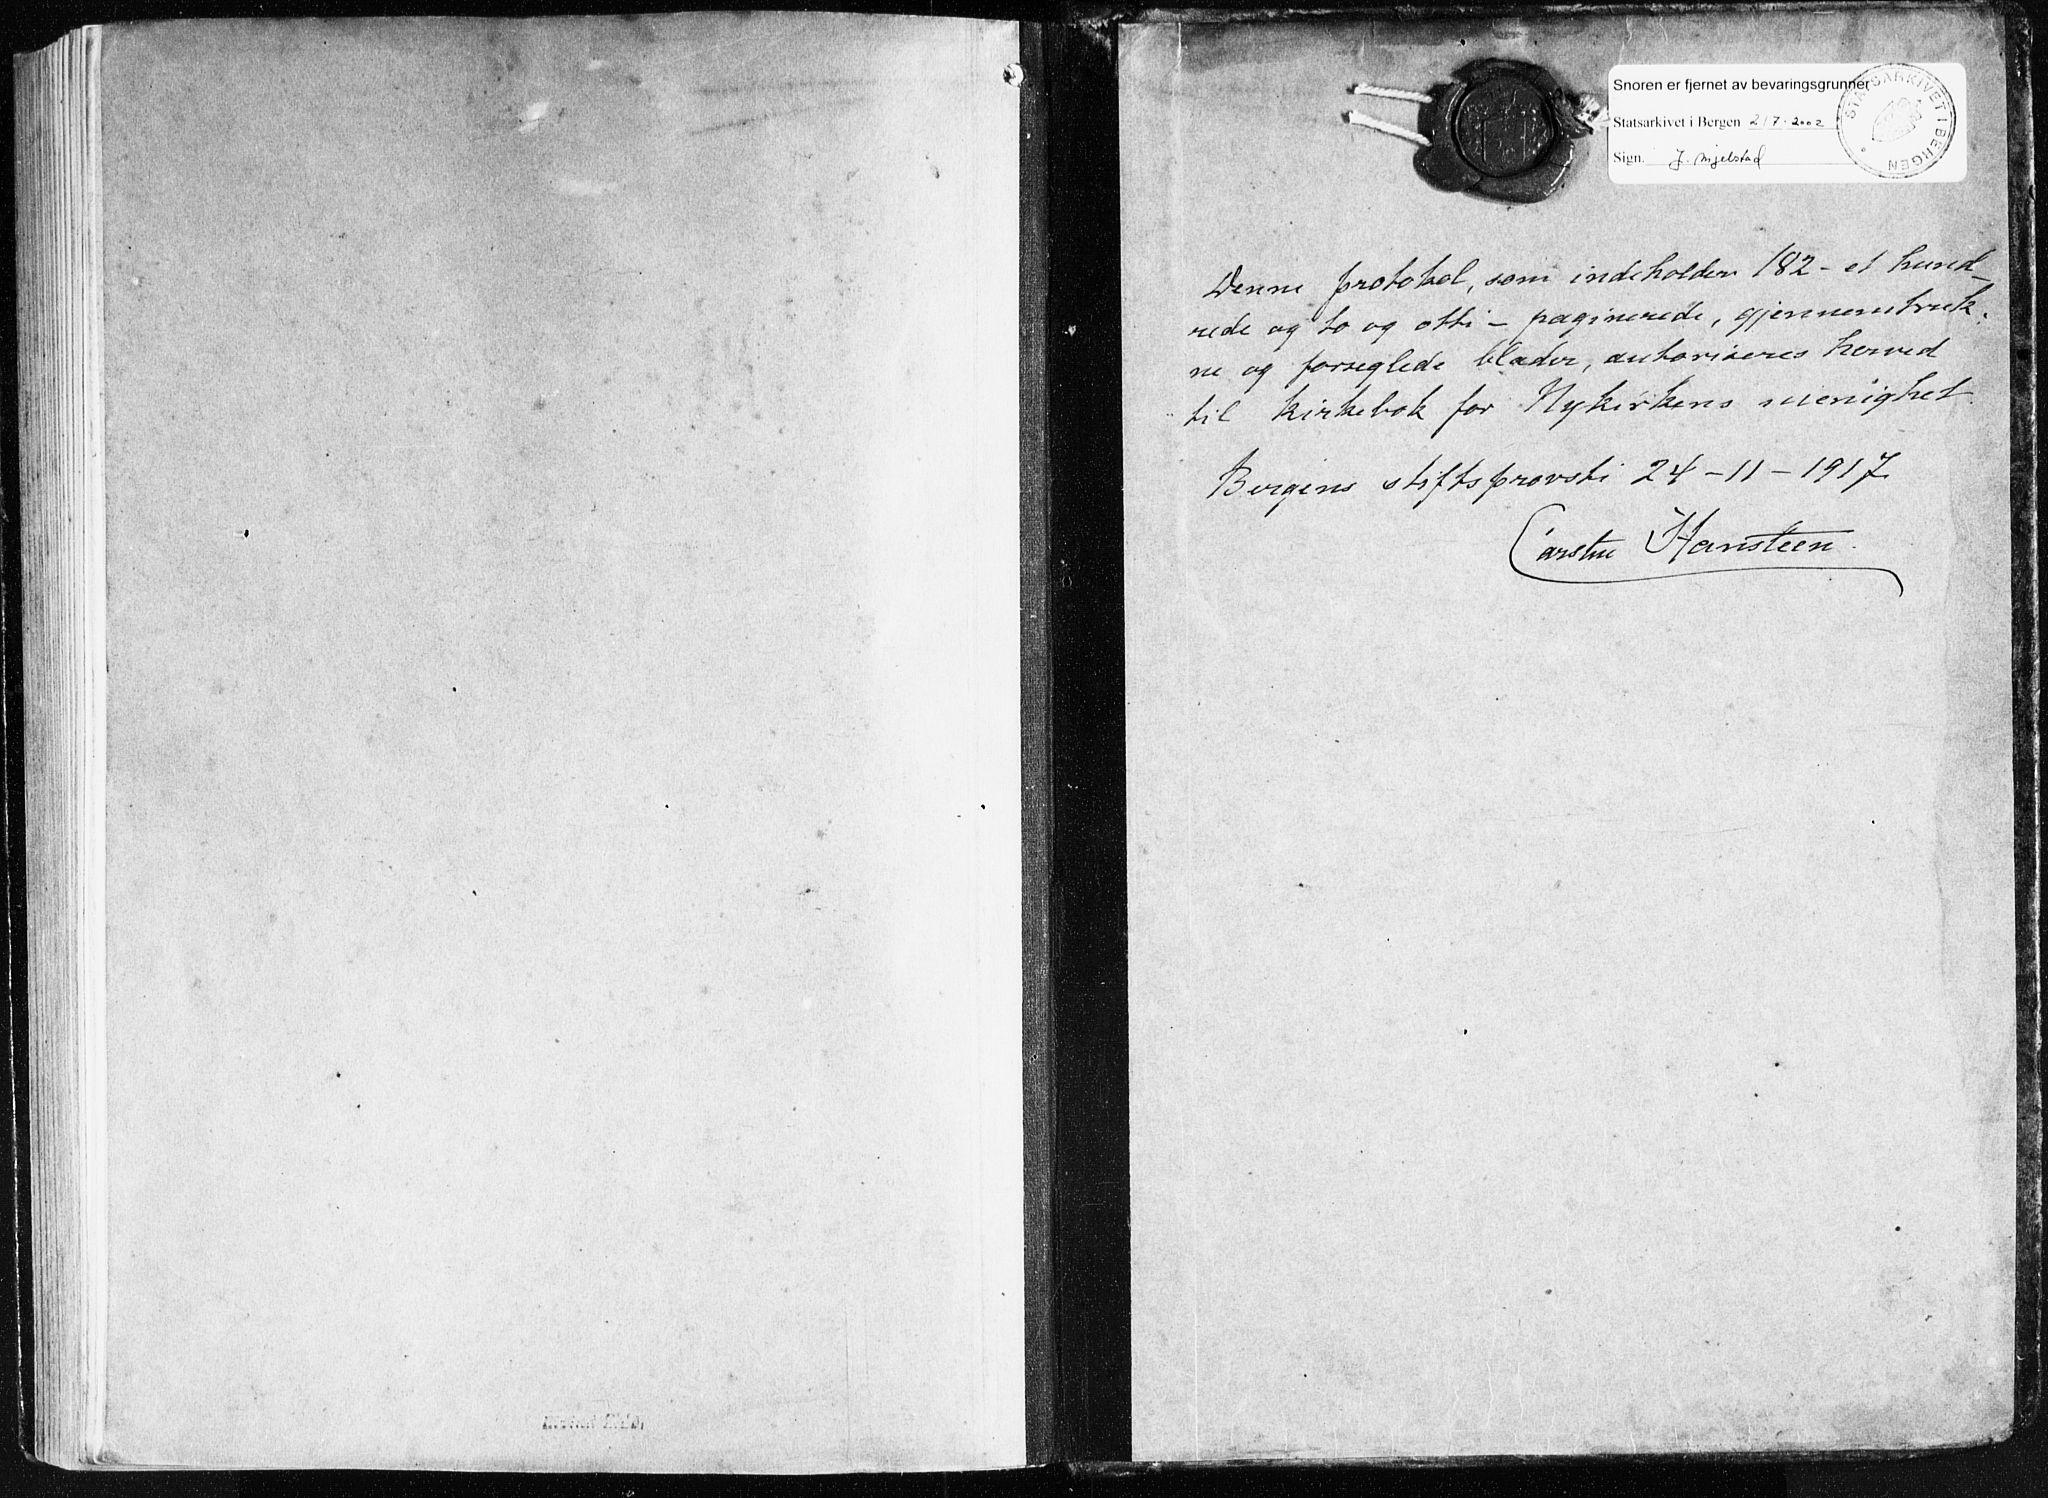 Snoren er fjernet av bevaringsgrunner
Statsarkivet i Bergen 2/7-2002
Sign. J. Mjelstad
STATSARKIVET I BERGEN
Denne protokol, som indeholder 182 - et hund-
rede og to og otti - paginerede, gjennemtruk-
ne og forseglede blader, autoriseres herved
til kirkebok for Nykirkens menighet.
Bergens stiftsprovsti 24-11-1917.
Carsten Hansteen.